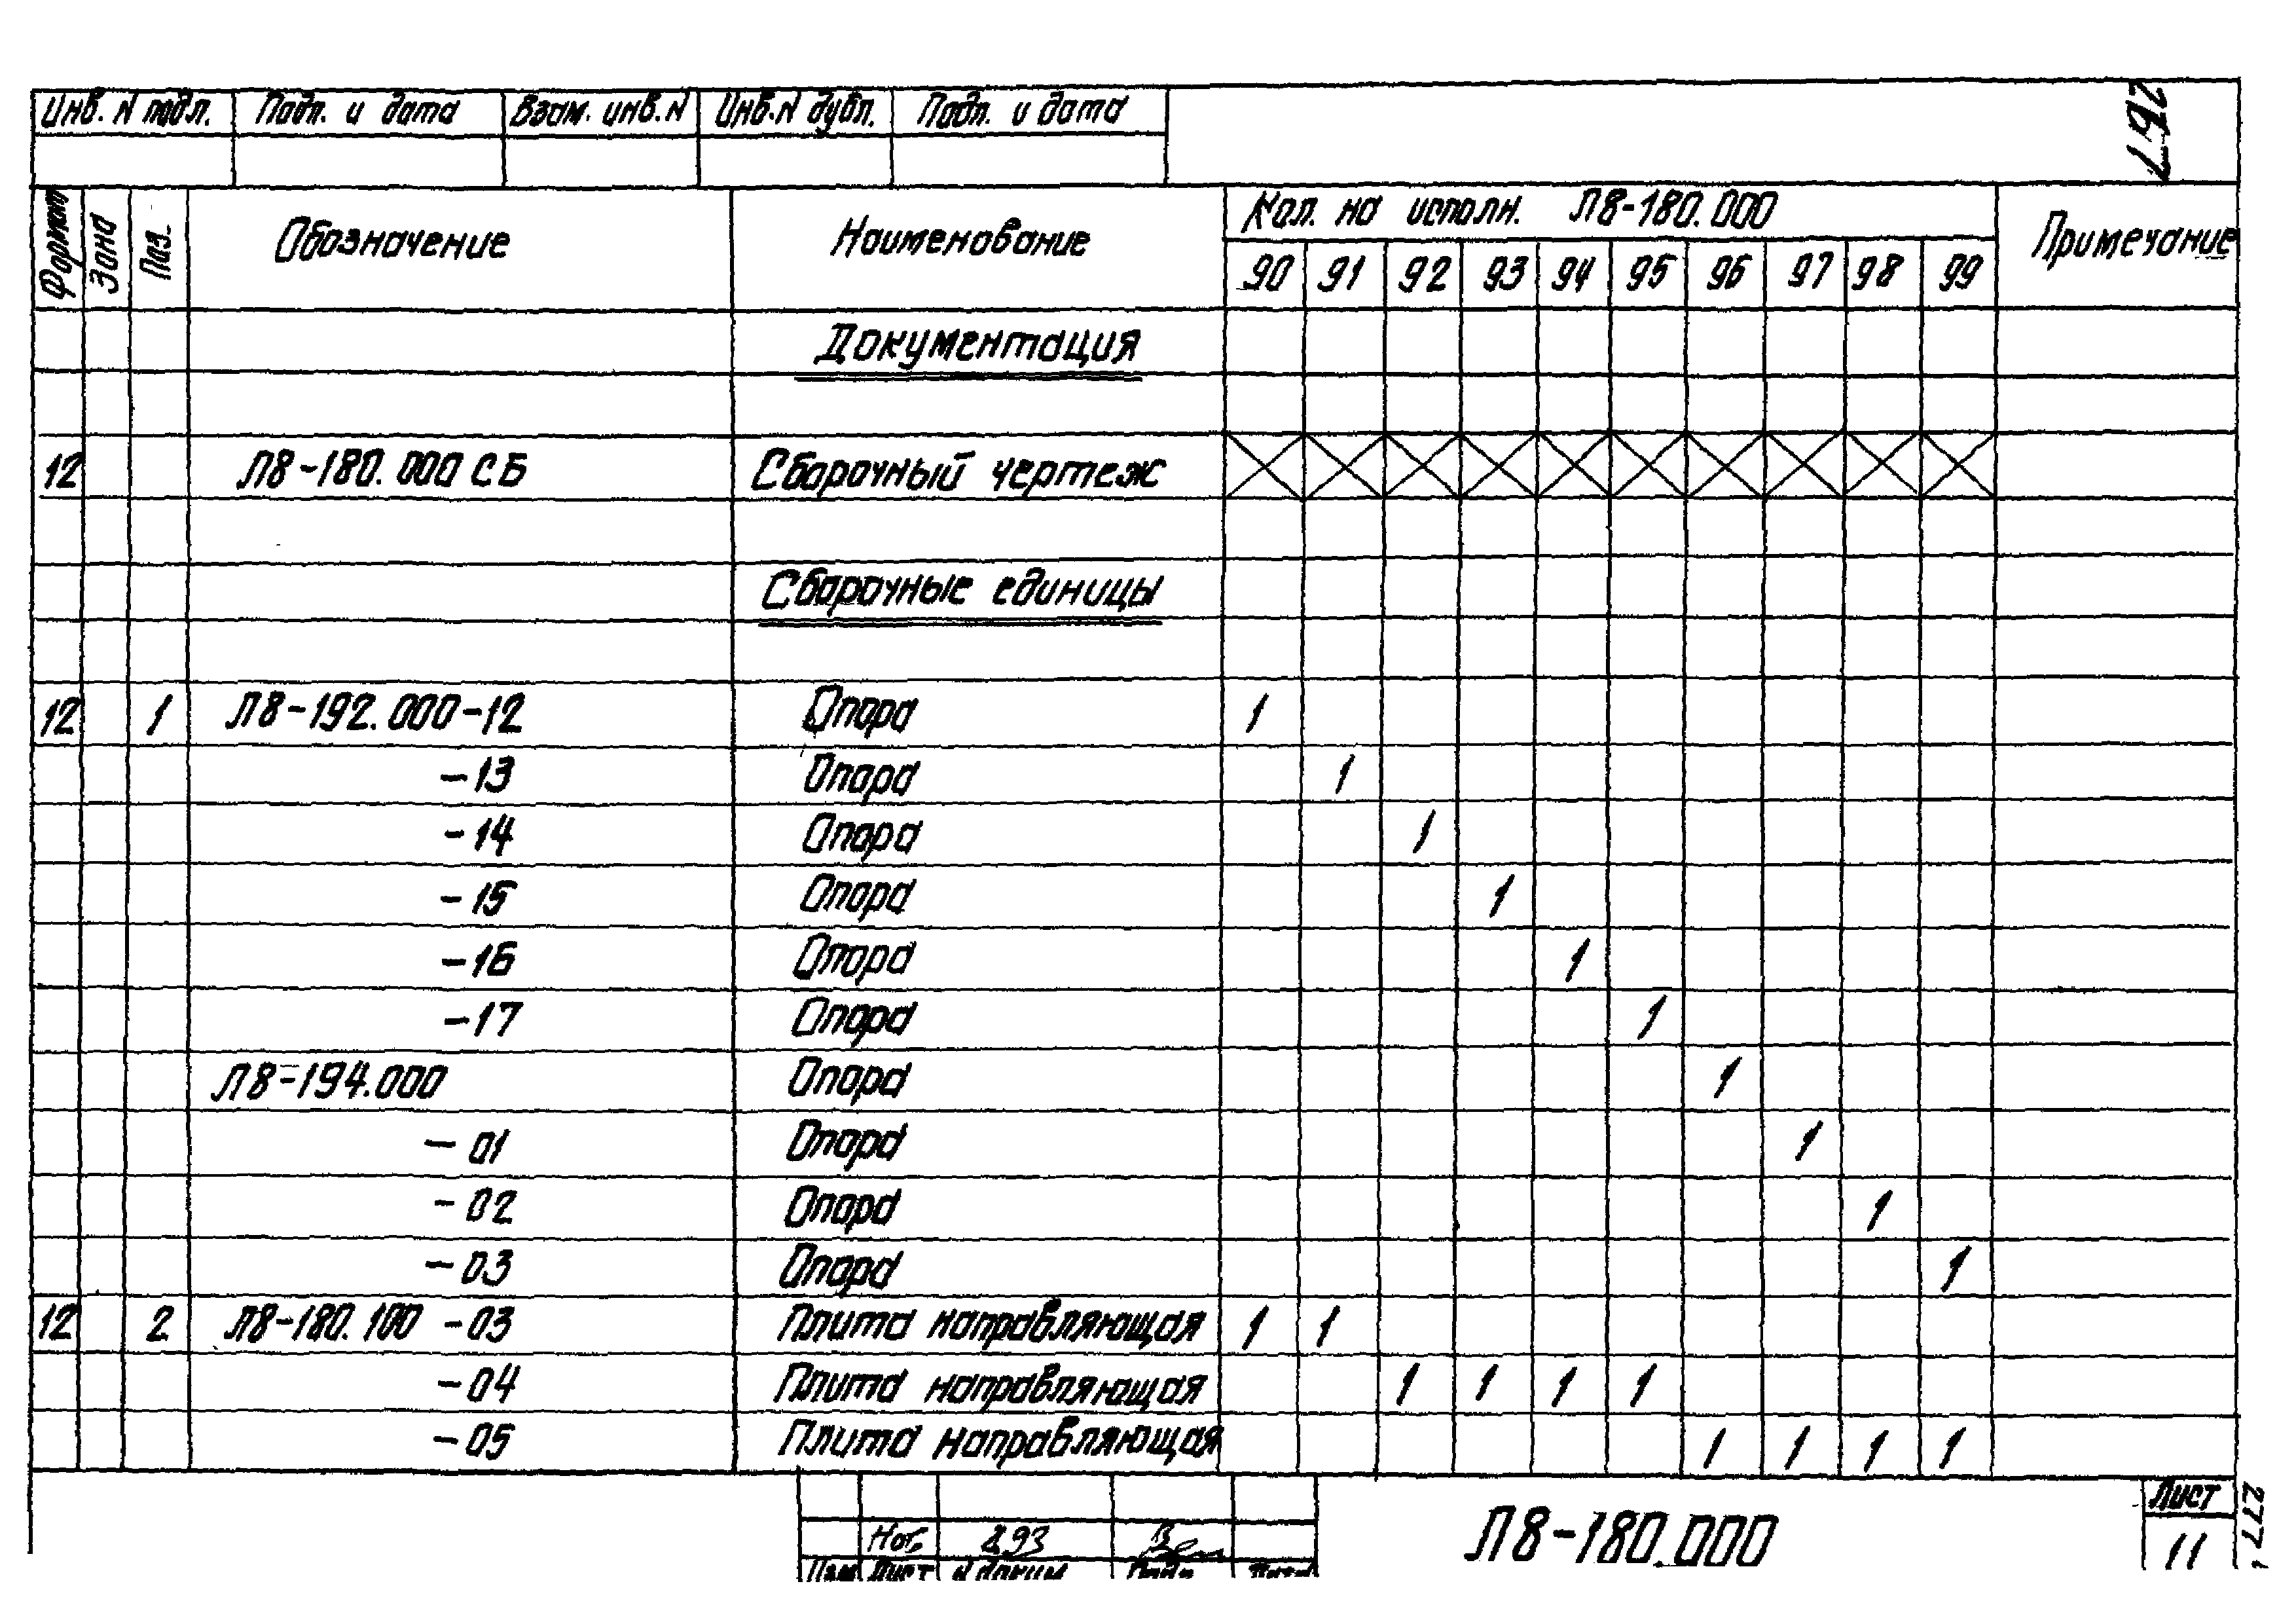 Инв. N подл. Подп. и дата Взам. инв. N Инв. N дубл. Подп. и дата
267
Формат Зона Поз. Обозначение Наименование Кол. на исполн. Л8-180.000 Примечание
90 91 92 93 94 95 96 97 98 99
Документация
12 Л8-180.000 СБ Сборочный чертеж
Сборочные единицы
12 1 Л8-192.000-12 Опора 1
-13 Опора 1
-14 Опора 1
-15 Опора 1
-16 Опора 1
-17 Опора 1
Л8-194.000 Опора 1
-01 Опора 1
-02 Опора 1
-03 Опора 1
12 2 Л8-180.100 -03 Плита направляющая 1 1
-04 Плита направляющая 1 1 1 1
-05 Плита направляющая 1 1 1 1
Нов. 2.93
Изм Лист N докум Подп. Дата
Л8-180.000
Лист
11